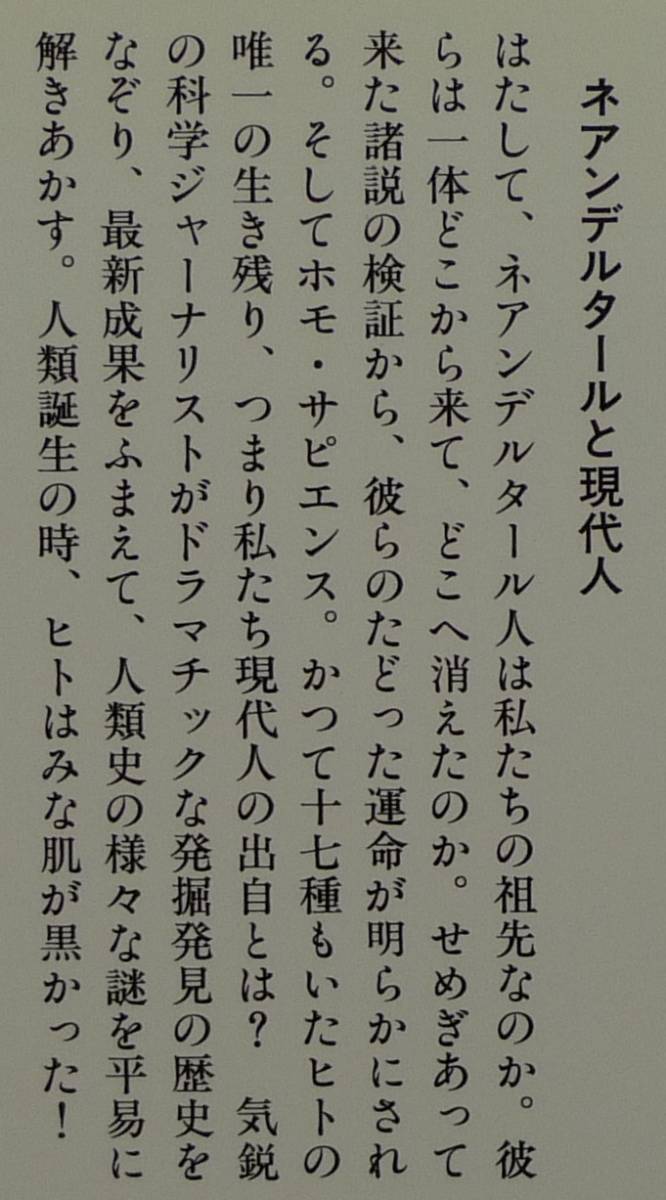 ネアンデルタールと現代人
はたして、ネアンデルタール人は私たちの祖先なのか。彼
らは一体どこから来て、どこへ消えたのか。せめぎあって
来た諸説の検証から、彼らのたどった運命が明らかにされ
る。そしてホモ・サピエンス。かつて十七種もいたヒトの
唯一の生き残り、つまり私たち現代人の出自とは？　気鋭
の科学ジャーナリストがドラマチックな発掘発見の歴史を
なぞり、最新成果をふまえて、人類史の様々な謎を平易に
解きあかす。人類誕生の時、ヒトはみな肌が黒かった！